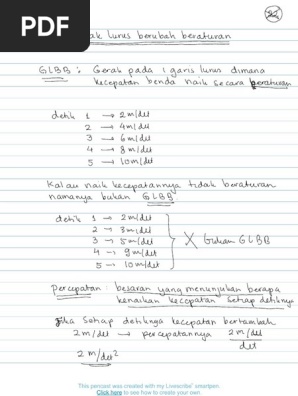 PDF
rak lurus berubah beraturan
GLBB : Gerak pada 1 garis lurus dimana
kecepatan benda naik secara beraturan
detik 1 → 2 m/det
2 → 4 m/det
3 → 6 m/det
4 → 8 m/det
5 → 10 m/det
Kalau naik kecepatannya tidak beraturan
namanya bukan GLBB.
detik 1 → 2 m/det
2 → 3 m/det
3 → 5 m/det
4 → 9 m/det
5 → 10 m/det
X bukan GLBB
Percepatan : besaran yang menunjukan berapa
kenaikan kecepatan setiap detiknya
Jika setiap detiknya kecepatan bertambah
2 m/det → percepatannya 2 m/det
det
2 m/det²
This pencast was created with my Livescribe™ smartpen.
Click here to see how to create your own.